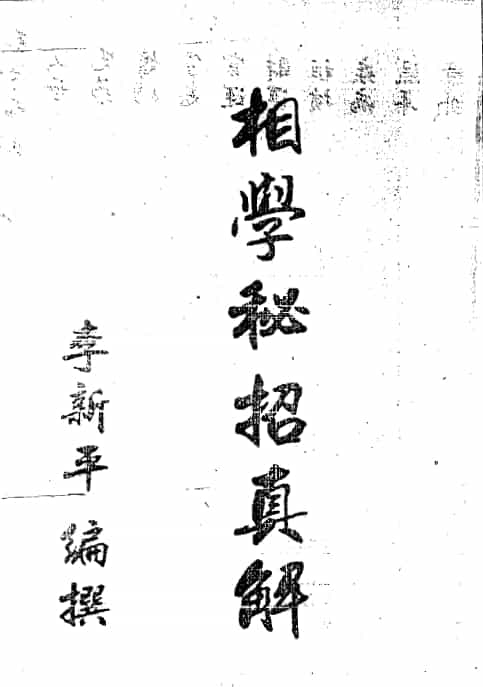 相學秘招真解
李新平編撰